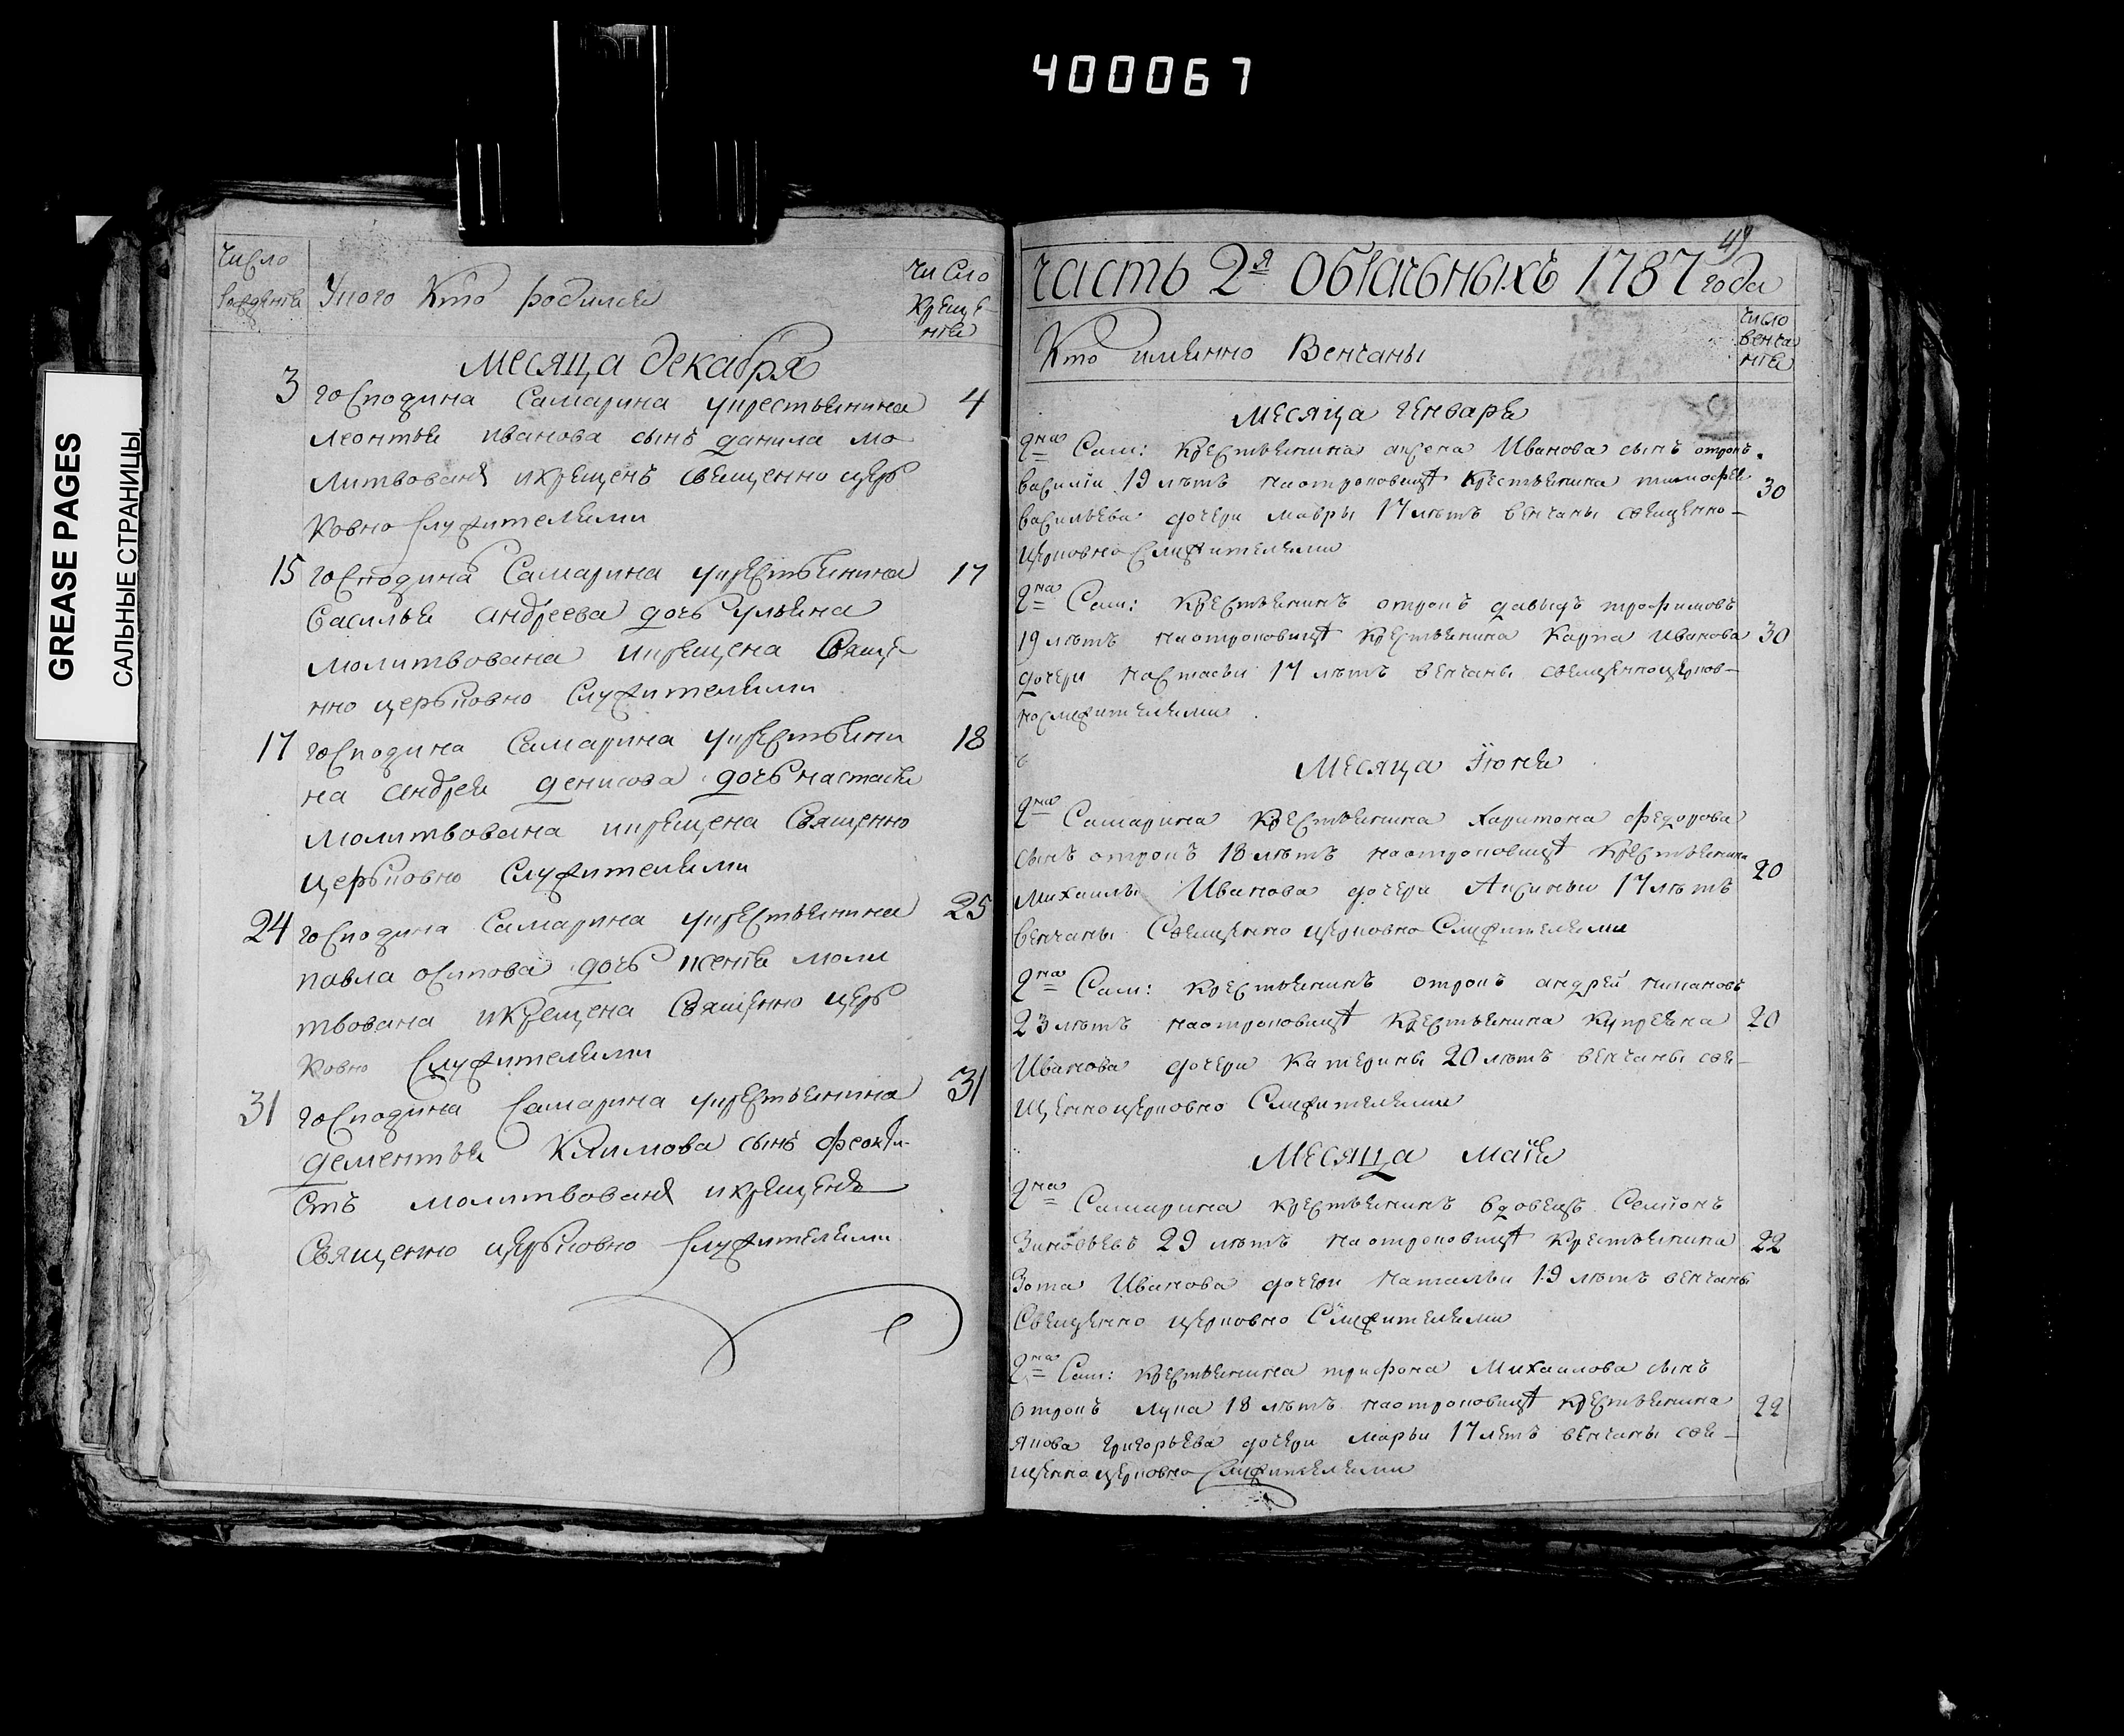 400067
GREASE PAGES
САЛЬНЫЕ СТРАНИЦЫ
число
рождения
Укого Кто родился
число
Креще-
ния
Месяца декабря
3 господина Самарина укрестьянина 4
леонтья иванова сынъ данила мо
литвованъ икрещенъ священно церь
ковно служителями
15 господина Самарина укрестьянина 17
василья андреева дочь ульяна
молитвована икрещена Свяще-
нно церьковно Служителями
17 господина Самарина укрестьяни 18
на андрея денисова дочь настасья
молитвована икрещена Священно
церьковно Служителями
24 господина Самарина укрестьянина 25
павла осипова дочь ксения моли
твована икрещена Священно церь
ковно Служителями
31 господина Самарина укрестьянина 31
дементья Климова сынъ феокти-
стъ молитвованъ икрещенъ
Священно церьковно служителями
49
часть 2я обрачьныхъ 1787 года
Кто имянно Венчаны
число
венча
ния
Месяца генваря
гна Сам: крестьянина аксена Иванова сынъ отрокъ
василiи 19 лѣтъ наотроковицѣ крестьянина тимофея 30
васильева дочери мавры 17 лѣтъ венчаны священно-
церковно Служителями
гна Сам: крестьянинъ отрокъ давыдъ трофимовъ
19 лѣтъ наотроковицѣ крестьянина Карпа иванова 30
дочери настасьи 17 лѣтъ венчаны священноцерков-
нослужителями
Месяца Iюня
гна Самарина крестьянина харитона федорова
сынъ отрокъ 18 лѣтъ наотроковицѣ крестьянина 20
михаилы Иванова дочери Аксиньи 17 лѣтъ
венчаны Священно церковно Служителями
гна Сам: крестьянинъ отрокъ андрей
23 лѣтъ наотроковицѣ крестьянина купреяна 20
Иванова дочери катерины 20 лѣтъ венчаны свя-
щенноцерковно Служителями
Месяца маiя
гна Самарина крестьянинъ вдовецъ Семионъ
Зиновьевъ 29 лѣтъ наотроковицѣ крестьянина 22
Зота Иванова дочери натальи 19 лѣтъ венчаны
Священно церковно Служителями
гна Сам: крестьянина трифона Михаилова сынъ
отрокъ лука 18 лѣтъ наотроковицѣ крестьянина 22
якова григорьева дочери марьи 17 летъ венчаны свя-
щенно церковно Служителями